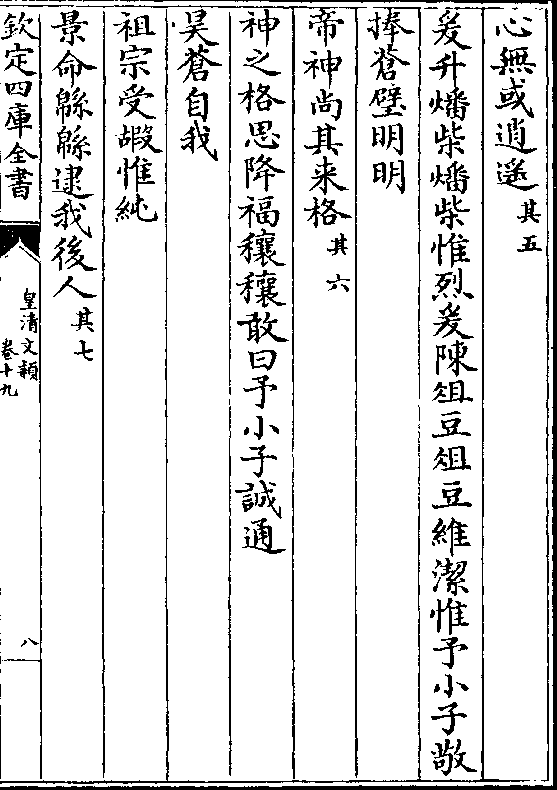 心無或逍遥其五
爰升燔柴燔柴惟烈爰陳俎豆俎豆維潔惟予小子敬
捧蒼璧明明
帝神尚其来格其六
神之格思降福穰穰敢曰予小子誠通
昊蒼自我
祖宗受嘏惟純
景命緜緜逮我後人其七
欽定四庫全書
皇清文頴
卷十九
八